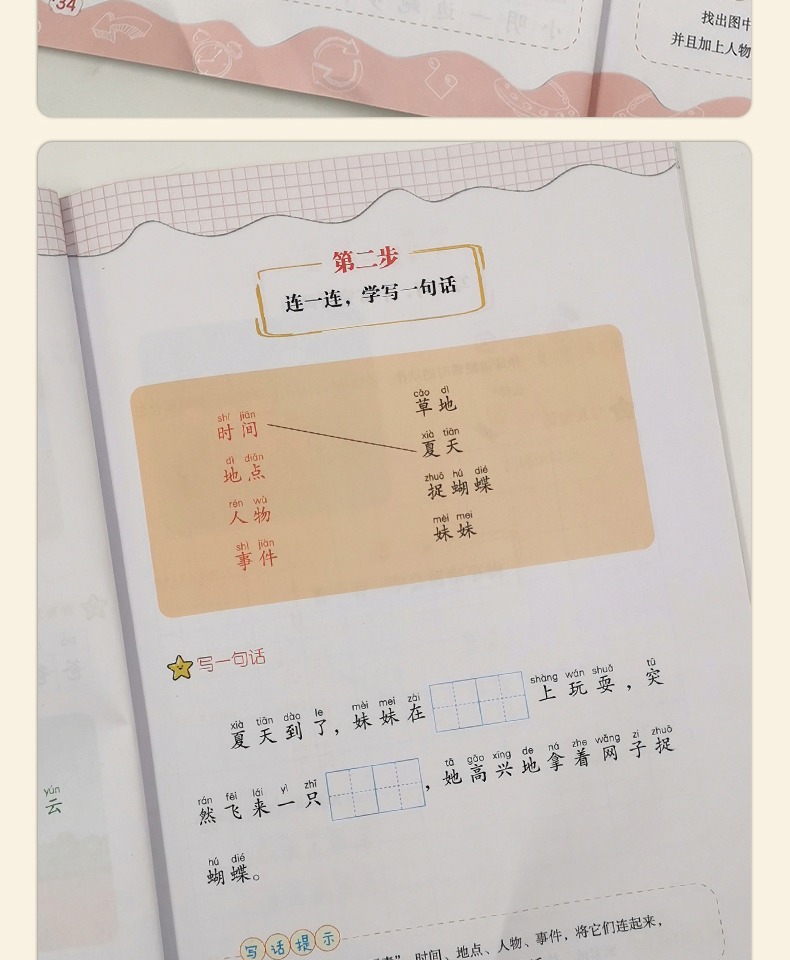 34
找出图中
并且加上人物
第二步
连一连，学写一句话
shí jiān
时间
dì diǎn
地点
rén wù
人物
shì jiàn
事件
cǎo dì
草地
xià tiān
夏天
zhuō hú dié
捉蝴蝶
mèi mei
妹妹
写一句话
xià tiān dào le mèi mei zài shàng wán shuǎ tū
夏天到了，妹妹在 上玩耍，突
rán fēi lái yì zhī tā gāo xìng de ná zhe wǎng zi zhuō
然飞来一只 ，她高兴地拿着网子捉
hú dié
蝴蝶。
yún
云
写话提示
时间、地点、人物、事件，将它们连起来，